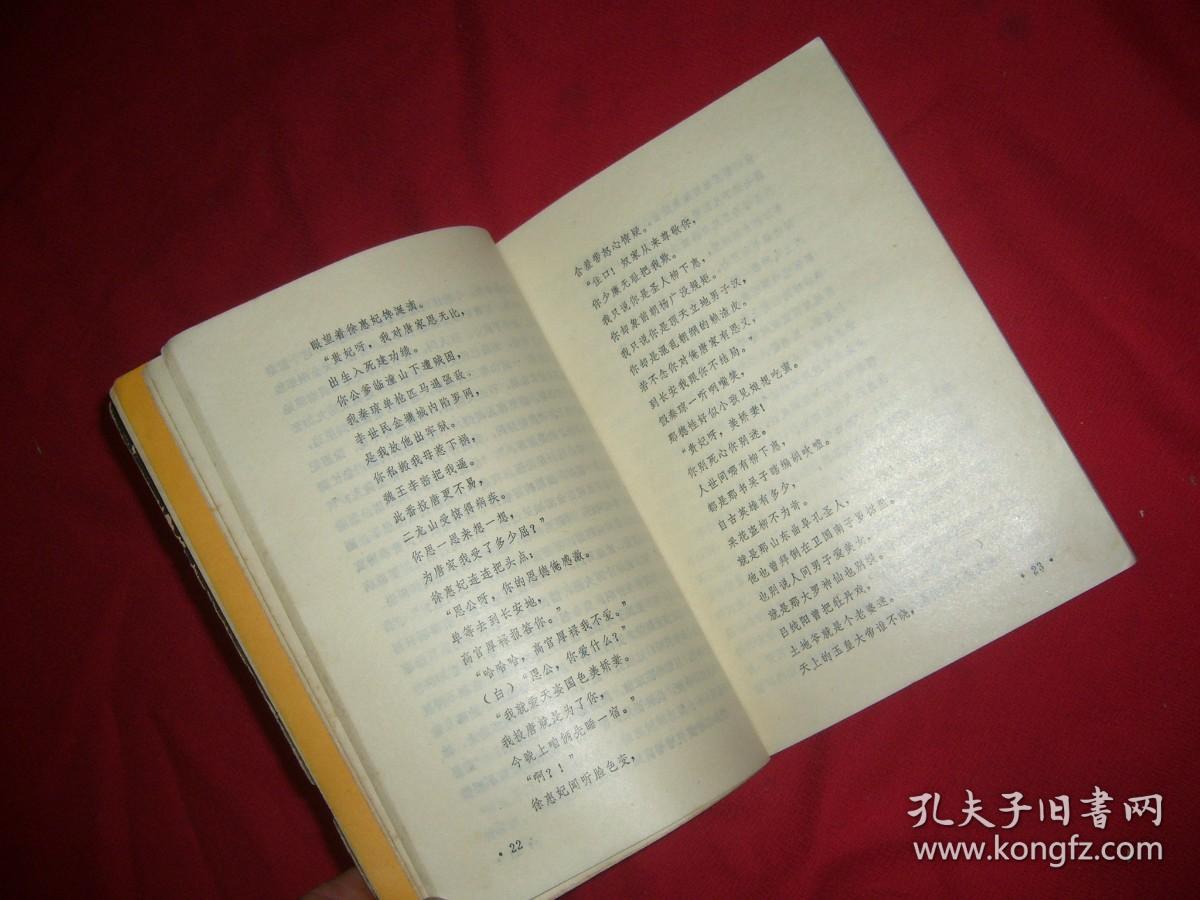 眼望着徐惠妃馋涎滴。
“贵妃呀，我对唐家恩无比，
出生入死建功绩。
你公爹临潼山下遭贼困，
我秦琼单枪匹马退强敌。
李世民金墉城内陷罗网，
是我放他出牢狱。
你私搬我母惹下祸，
魏王李密把我逼。
此番投唐更不易，
二龙山受惊得病疾。
你思一思来想一想，
为唐家我受了多少屈？”
徐惠妃连连把头点：
“恩公呀，你的恩德俺感激。
单等去到长安地，
高官厚禄报答你。”
“哈哈哈，高官厚禄我不爱。”
（白）“恩公，你爱什么？”
“我就爱天姿国色美娇妻。
我投唐就是为了你，
今晚上咱俩先睡一宿。”
“啊？！”
徐惠妃闻听脸色变，
• 22
含羞带怒心惊疑。
“住口！奴家从来尊敬你，
你少廉无耻把我欺。
我只说你是圣人柳下惠，
你却象前朝杨广没规矩。
我只说你是顶天立地男子汉，
你却是混乱朝纲的赖渣皮。
若不念你对俺唐家有恩义，
到长安我跟你不结局。”
假秦琼一听咧嘴笑，
那德性好似小孩见娘想吃蜜。
“贵妃呀，美娇妻！
你别死心你别迷。
人世间哪有柳下惠，
都是那书呆子瞎编胡吹嘘。
自古英雄有多少，
采花盗柳不为奇。
就是那山东曲阜孔圣人，
他也曾拜倒在卫国南子罗裙里。
也别说人间男子爱美女，
就是那大罗神仙也别提。
吕纯阳曾把牡丹戏，
土地爷就是个老婆迷。
天上的玉皇大帝谁不晓，
• 23 •
孔夫子旧书网
www.kongfz.com